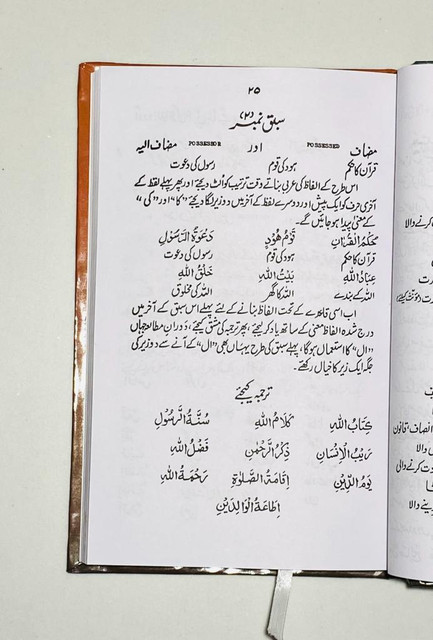 ۲۵
سبق نمبر (۲)
مضاف POSSESSED اور POSSESSOR مضاف الیہ
قرآن کا حکم ہود کی قوم رسول کی دعوت
اس طرح کے الفاظ کی عربی بناتے وقت ترتیب کو الٹ دیجئے اور پھر پہلے لفظ کے
آخری حرف کو ایک پیش اور دوسرے لفظ کے آخر میں دو زیر لگا دیجئے "کا" اور "کی"
کے معنی پیدا ہو جائیں گے۔
حُكْمُ الْقُرْاٰنِ قَوْمُ هُوْدٍ دَعْوَةُ الرَّسُوْلِ
قرآن کا حکم ہود کی قوم رسول کی دعوت
عِبَادُ اللهِ بَيْتُ اللهِ خَلْقُ اللهِ
اللہ کے بندے اللہ کا گھر اللہ کی مخلوق
اب اسی قاعدے کے تحت الفاظ بنانے کے لئے پہلے اس سبق کے آخر میں
درج شدہ الفاظ معنی کے ساتھ یاد کر لیجئے، پھر ترجمہ کی مشق کیجئے، دَورانِ مطالعہ جہاں
"ال" کا استعمال ہوگا، پہلے سبق کی طرح یہاں بھی "ال" کے آنے سے دو زیر کی
جگہ ایک زیر کا خیال رکھئے۔
ترجمہ کیجئے
كِتَابُ اللهِ كَلَامُ اللهِ سُنَّةُ الرَّسُوْلِ
رَيْبُ الْاِنْسَانِ ذِكْرُ الرَّحْمٰنِ فَضْلُ اللهِ
يَوْمُ الدِّيْنِ اِقَامَةُ الصَّلٰوةِ رَحْمَةُ اللهِ
اِطَاعَةُ الْوَالِدَيْنِ